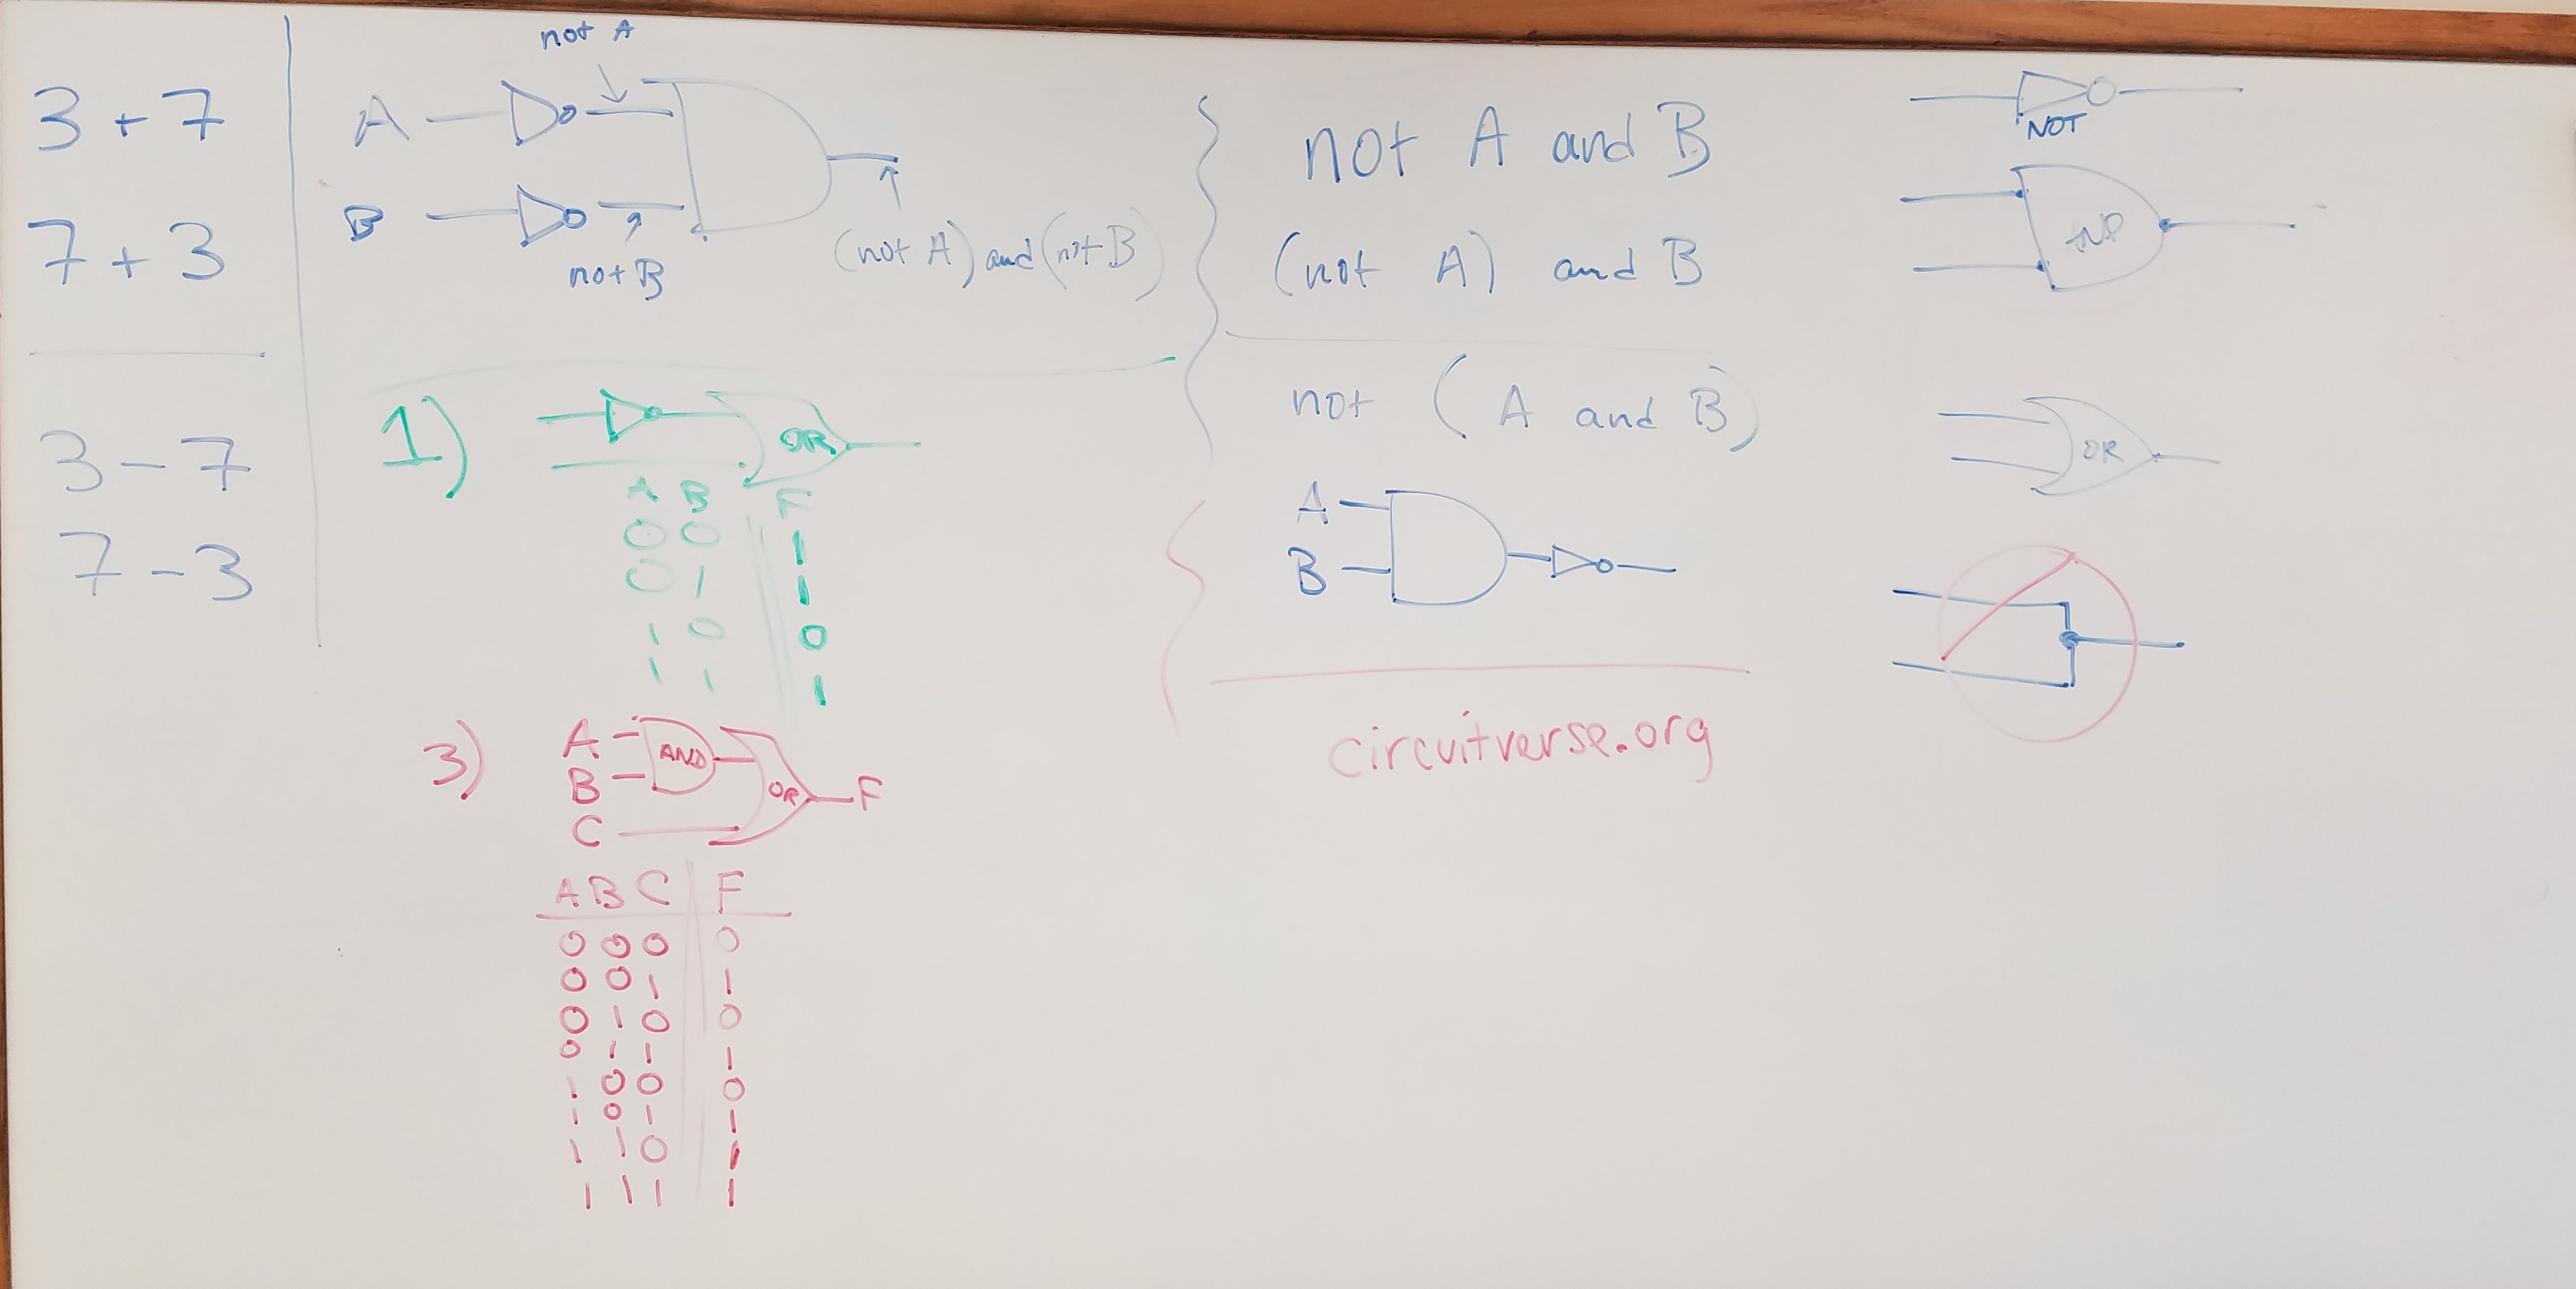 3 + 7
7 + 3
3 - 7
7 - 3
not A
A
B
not B
(not A) and (not B)
1)
OR
A B F
0 0 1
0 1 1
1 0 0
1 1 1
3)
A
B
C
AND
OR
F
A B C F
0 0 0 0
0 0 1 1
0 1 0 0
0 1 1 1
1 0 0 0
1 0 1 1
1 1 0 1
1 1 1 1
not A and B
(not A) and B
not (A and B)
A
B
circuitverse.org
NOT
OR